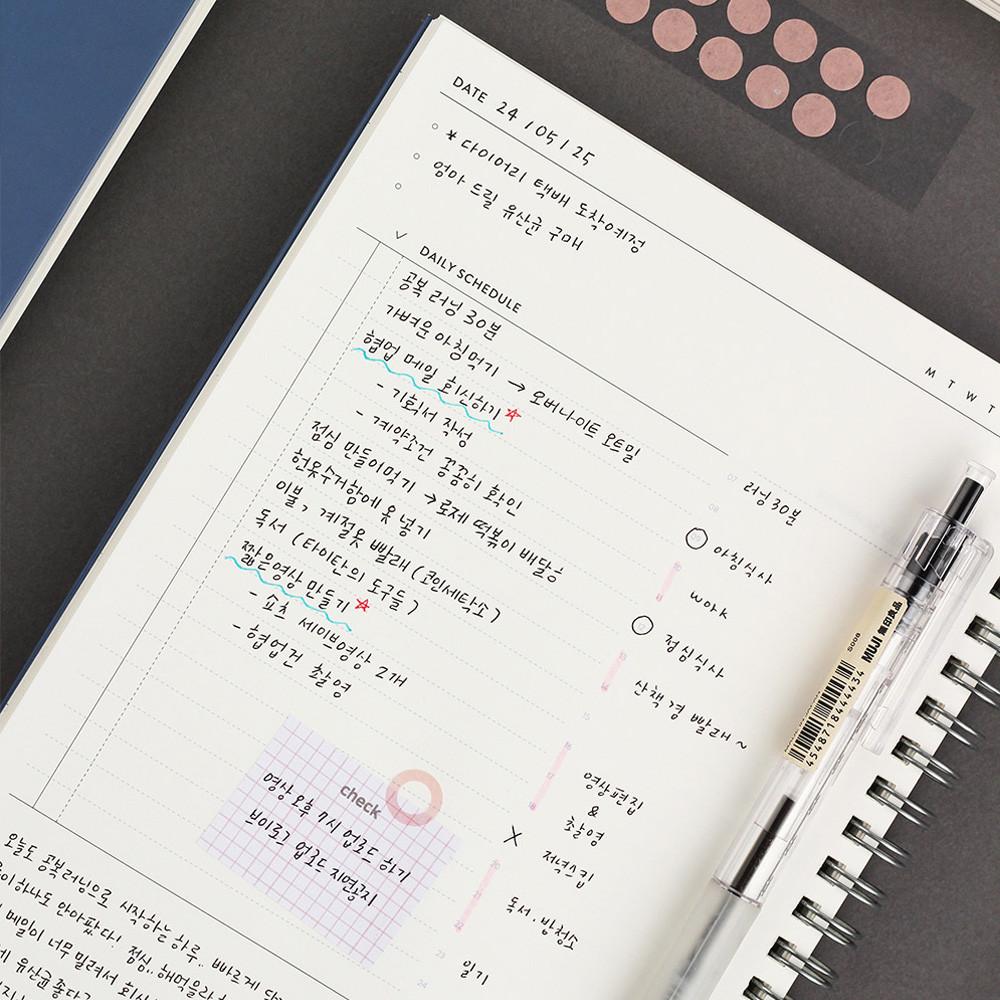 DATE 24 / 05 / 25
* 다이어리 택배 도착예정
엄마 드릴 유산균 구매
M T W T
DAILY SCHEDULE
공복 러닝 30분
가벼운 아침먹기 → 오버나이트 오트밀
협업 메일 회신하기
- 기획서 작성
- 계약조건 꼼꼼히 확인
점심 만들어먹기 → 로제 떡볶이 배달용
헌옷수거함에 옷 넣기
이불, 계절옷 빨래 (코인세탁소)
독서 (타이탄의 도구들)
짧은영상 만들기
- 쇼츠 세이브영상 2개
- 협업건 촬영
07 러닝 30분
08
09 아침식사
work
점심식사
13
산책 겸 빨래~
15
16
영상편집
&
촬영
18
X 저녁스킵
20
독서·방청소
22
23 일기
24
check
영상 오후 7시 업로드 하기
브이로그 업로드 지연공지
오늘도 공복러닝으로 시작하는 하루.. 빠르게
하나도 안아팠다! 점심.. 해먹을라
메일이 너무 밀려서 회신
유산균 좋다고
MUJI 無印良品
4548718444434